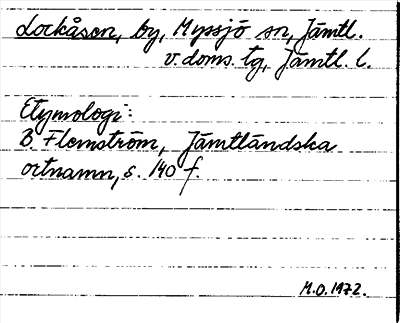 Lockåsen, by, Myssjö sn, Jämtl.
v. doms. tg, Jämtl. l.
Etymologi:
B. Flemström, Jämtländska
ortnamn, s. 140 f.
M.O. 1972.